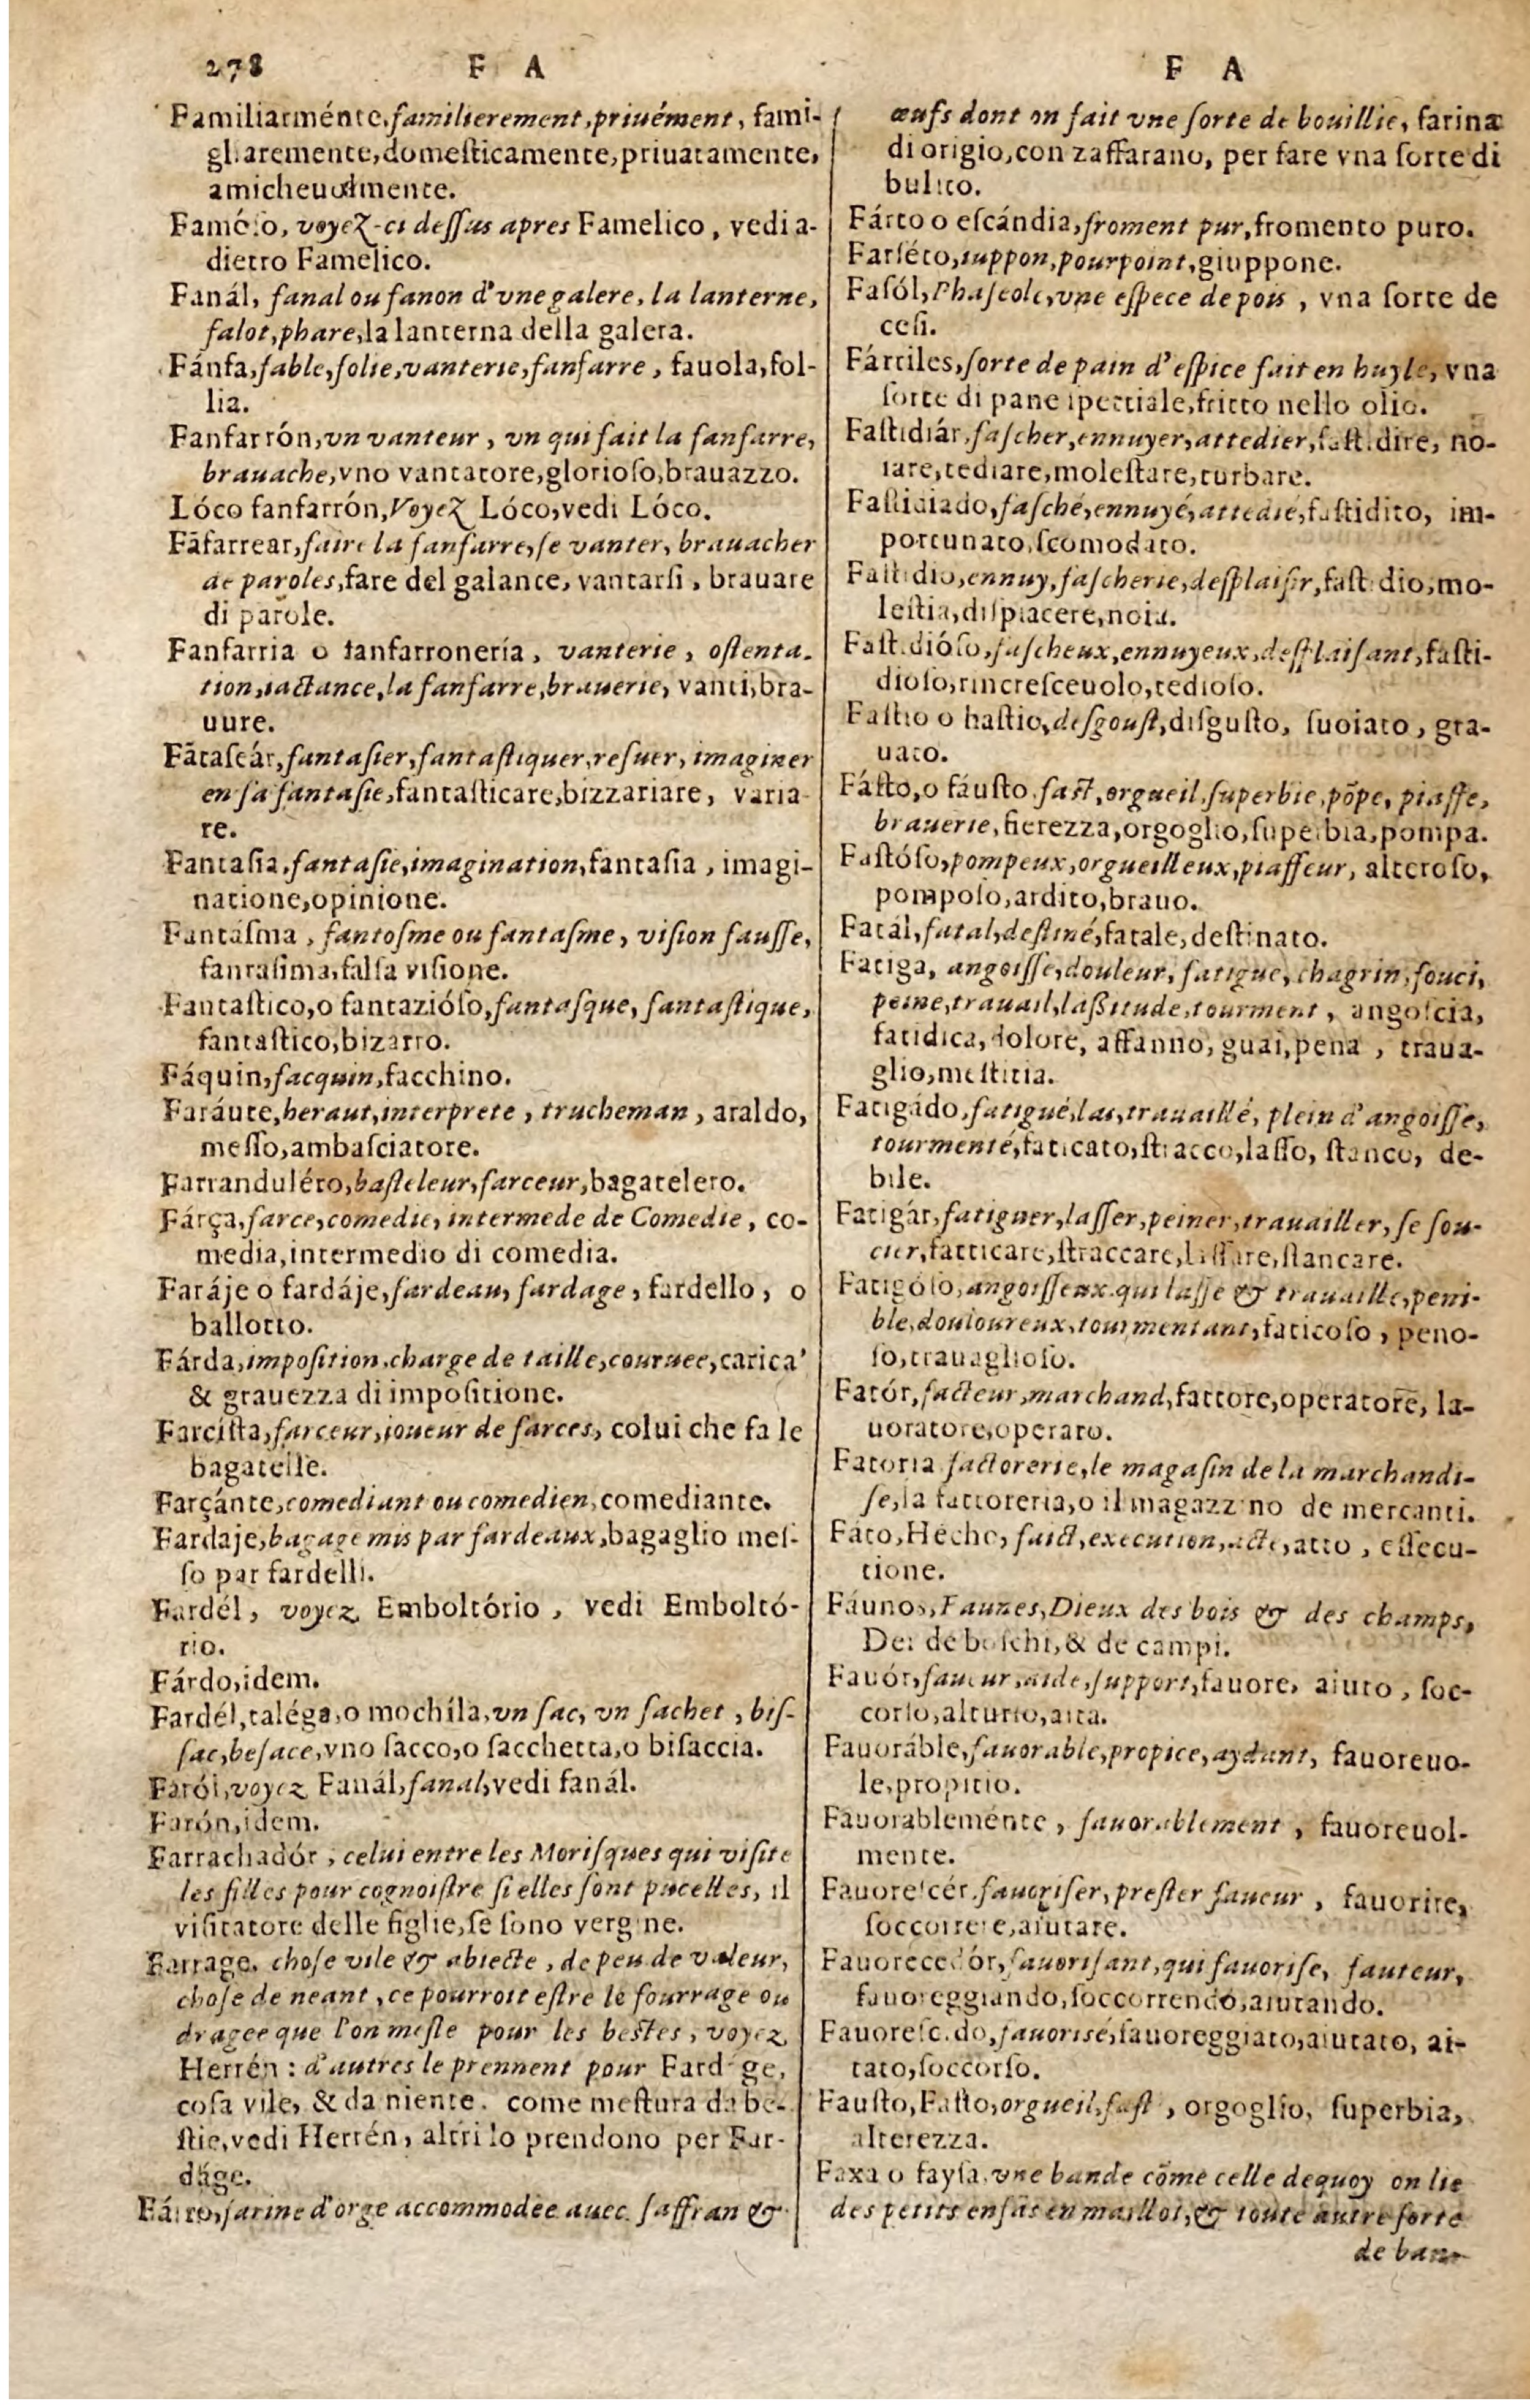 278 F A
Familiarménte, familierement, priuément, fami-
gliaremente, domeſticamente, priuatamente,
amicheuolmente.
Famóſo, voyez-ci deſſus apres Famelico, vedi a-
dietro Famelico.
Fanál, fanal ou fanon d'vne galere, la lanterne,
falot, phare, la lanterna della galera.
Fánfa, fable, folie, vanterie, fanfarre, fauola, fol-
lia.
Fanfarrón, vn vanteur, vn qui fait la fanfarre,
brauache, vno vantatore, glorioſo, brauazzo.
Lóco fanfarrón, Voyez Lóco, vedi Lóco.
Fãfarrear, faire la fanfarre, ſe vanter, brauacher
de paroles, fare del galante, vantarſi, brauare
di parole.
Fanfarria o fanfarronería, vanterie, oſtenta-
tion, iactance, la fanfarre, brauerie, vanti, bra-
uure.
Fãtaſeár, fantaſier, fantaſtiquer, reſuer, imaginer
en ſa fantaſie, fantaſticare, bizzariare, varia-
re.
Fantaſia, fantaſie, imagination, fantaſia, imagi-
natione, opinione.
Fantáſma, fantoſme ou fantaſme, viſion fauſſe,
fantaſima, falſa viſione.
Fantaſtico, o fantazióſo, fantaſque, fantaſtique,
fantaſtico, bizarro.
Fáquin, facquin, facchino.
Faráute, heraut, interprete, trucheman, araldo,
meſſo, ambaſciatore.
Farranduléro, baſteleur, farceur, bagatelero.
Fárça, farce, comedie, intermede de Comedie, co-
media, intermedio di comedia.
Faráje o fardáje, fardeau, fardage, fardello, o
ballotto.
Fárda, impoſition, charge de taille, couruee, carica
& grauezza di impoſitione.
Farciſta, farceur, ioueur de farces, colui che fa le
bagatelle.
Farçánte, comediant ou comedien, comediante.
Fardaje, bagage mis par fardeaux, bagaglio meſ-
ſo par fardelli.
Fardél, voyez Emboltório, vedi Emboltó-
rio.
Fárdo, idem.
Fardél, taléga, o mochíla, vn ſac, vn ſachet, biſ-
ſac, beſace, vno ſacco, o ſacchetta, o biſaccia.
Faról, voyez Fanál, fanal, vedi fanál.
Farón, idem.
Farrachadór, celui entre les Moriſques qui viſite
les filles pour cognoiſtre ſi elles ſont pucelles, il
viſitatore delle figlie, ſe ſono vergine.
Farrage, choſe vile & abiecte, de peu de valeur,
choſe de neant, ce pourroit eſtre le fourrage ou
dragee que l'on meſle pour les beſtes, voyez
Herrén: d'autres le prennent pour Fardage,
coſa vile, & da niente, come meſtura da be-
ſtie, vedi Herrén, altri lo prendono per Far-
dáge.
Fárro, farine d'orge accommodee auec ſaffran &
F A
œufs dont on fait vne ſorte de bouillie, farina
di origio, con zaffarano, per fare vna ſorte di
bulito.
Fárto o eſcándia, froment pur, fromento puro.
Farſéto, iuppon, pourpoint, giuppone.
Faſól, Phaſeole, vne eſpece de pois, vna ſorte de
ceſi.
Fártiles, ſorte de pain d'eſpice fait en huyle, vna
ſorte di pane ipettiale, fritto nello olio.
Faſtidiár, faſcher, ennuyer, attedier, faſtidire, no-
iare, tediare, moleſtare, turbare.
Faſtidiado, faſché, ennuyé, attedié, faſtidito, im-
portunato, ſcomodato.
Faſtidio, ennuy, faſcherie, deſplaiſir, faſtidio, mo-
leſtia, diſpiacere, noia.
Faſtidióſo, faſcheux, ennuyeux, deſplaiſant, faſti-
dioſo, rincreſceuolo, tedioſo.
Faſtio o haſtio, deſgouſt, diſguſto, ſuoiato, gra-
uato.
Fáſto, o fáuſto, faſt, orgueil, ſuperbie, põpe, piaffe,
brauerie, fierezza, orgoglio, ſuperbia, pompa.
Faſtóſo, pompeux, orgueilleux, piaffeur, alteroſo,
pompoſo, ardito, brauo.
Fatál, fatal, deſtiné, fatale, deſtinato.
Fatiga, angoiſſe, douleur, fatigue, chagrin, ſouci,
peine, trauail, laßitude, tourment, angoſcia,
fatidica, dolore, affanno, guai, pena, traua-
glio, meſtitia.
Fatigádo, fatigué, las, trauaillé, plein d'angoiſſe,
tourmenté, faticato, ſtracco, laſſo, ſtanco, de-
bile.
Fatigár, fatiguer, laſſer, peiner, trauailler, ſe ſou-
cier, fatticare, ſtraccare, laſſare, ſtancare.
Fatigóſo, angoiſſeux, qui laſſe & trauaille, peni-
ble, douloureux, tourmentant, faticoſo, peno-
ſo, trauaglioſo.
Fatór, facteur, marchand, fattore, operatore, la-
uoratore, operaro.
Fatoria factorerie, le magaſin de la marchandi-
ſe, la fattoreria, o il magazzino de mercanti.
Fáto, Hécho, faict, execution, acte, atto, eſſecu-
tione.
Fáunos, Faunes, Dieux des bois & des champs,
Dei de boſchi, & de campi.
Fauór, faueur, aide, ſupport, fauore, aiuto, ſoc-
corſo, alturio, aita.
Fauoráble, fauorable, propice, aydant, fauoreuo-
le, propitio.
Fauorableménte, fauorablement, fauoreuol-
mente.
Fauoreſcér, fauoriſer, preſter faueur, fauorire,
ſoccorrere, aiutare.
Fauorecedór, fauoriſant, qui fauoriſe, fauteur,
fauoreggiando, ſoccorrendo, aiutando.
Fauoreſcido, fauorisé, fauoreggiato, aiutato, ai-
tato, ſoccorſo.
Fauſto, Faſto, orgueil, faſt, orgoglio, ſuperbia,
alterezza.
Faxa o fayſa, vne bande cõme celle dequoy on lie
des petits enfãs en maillot, & toute autre ſorte
de ban-